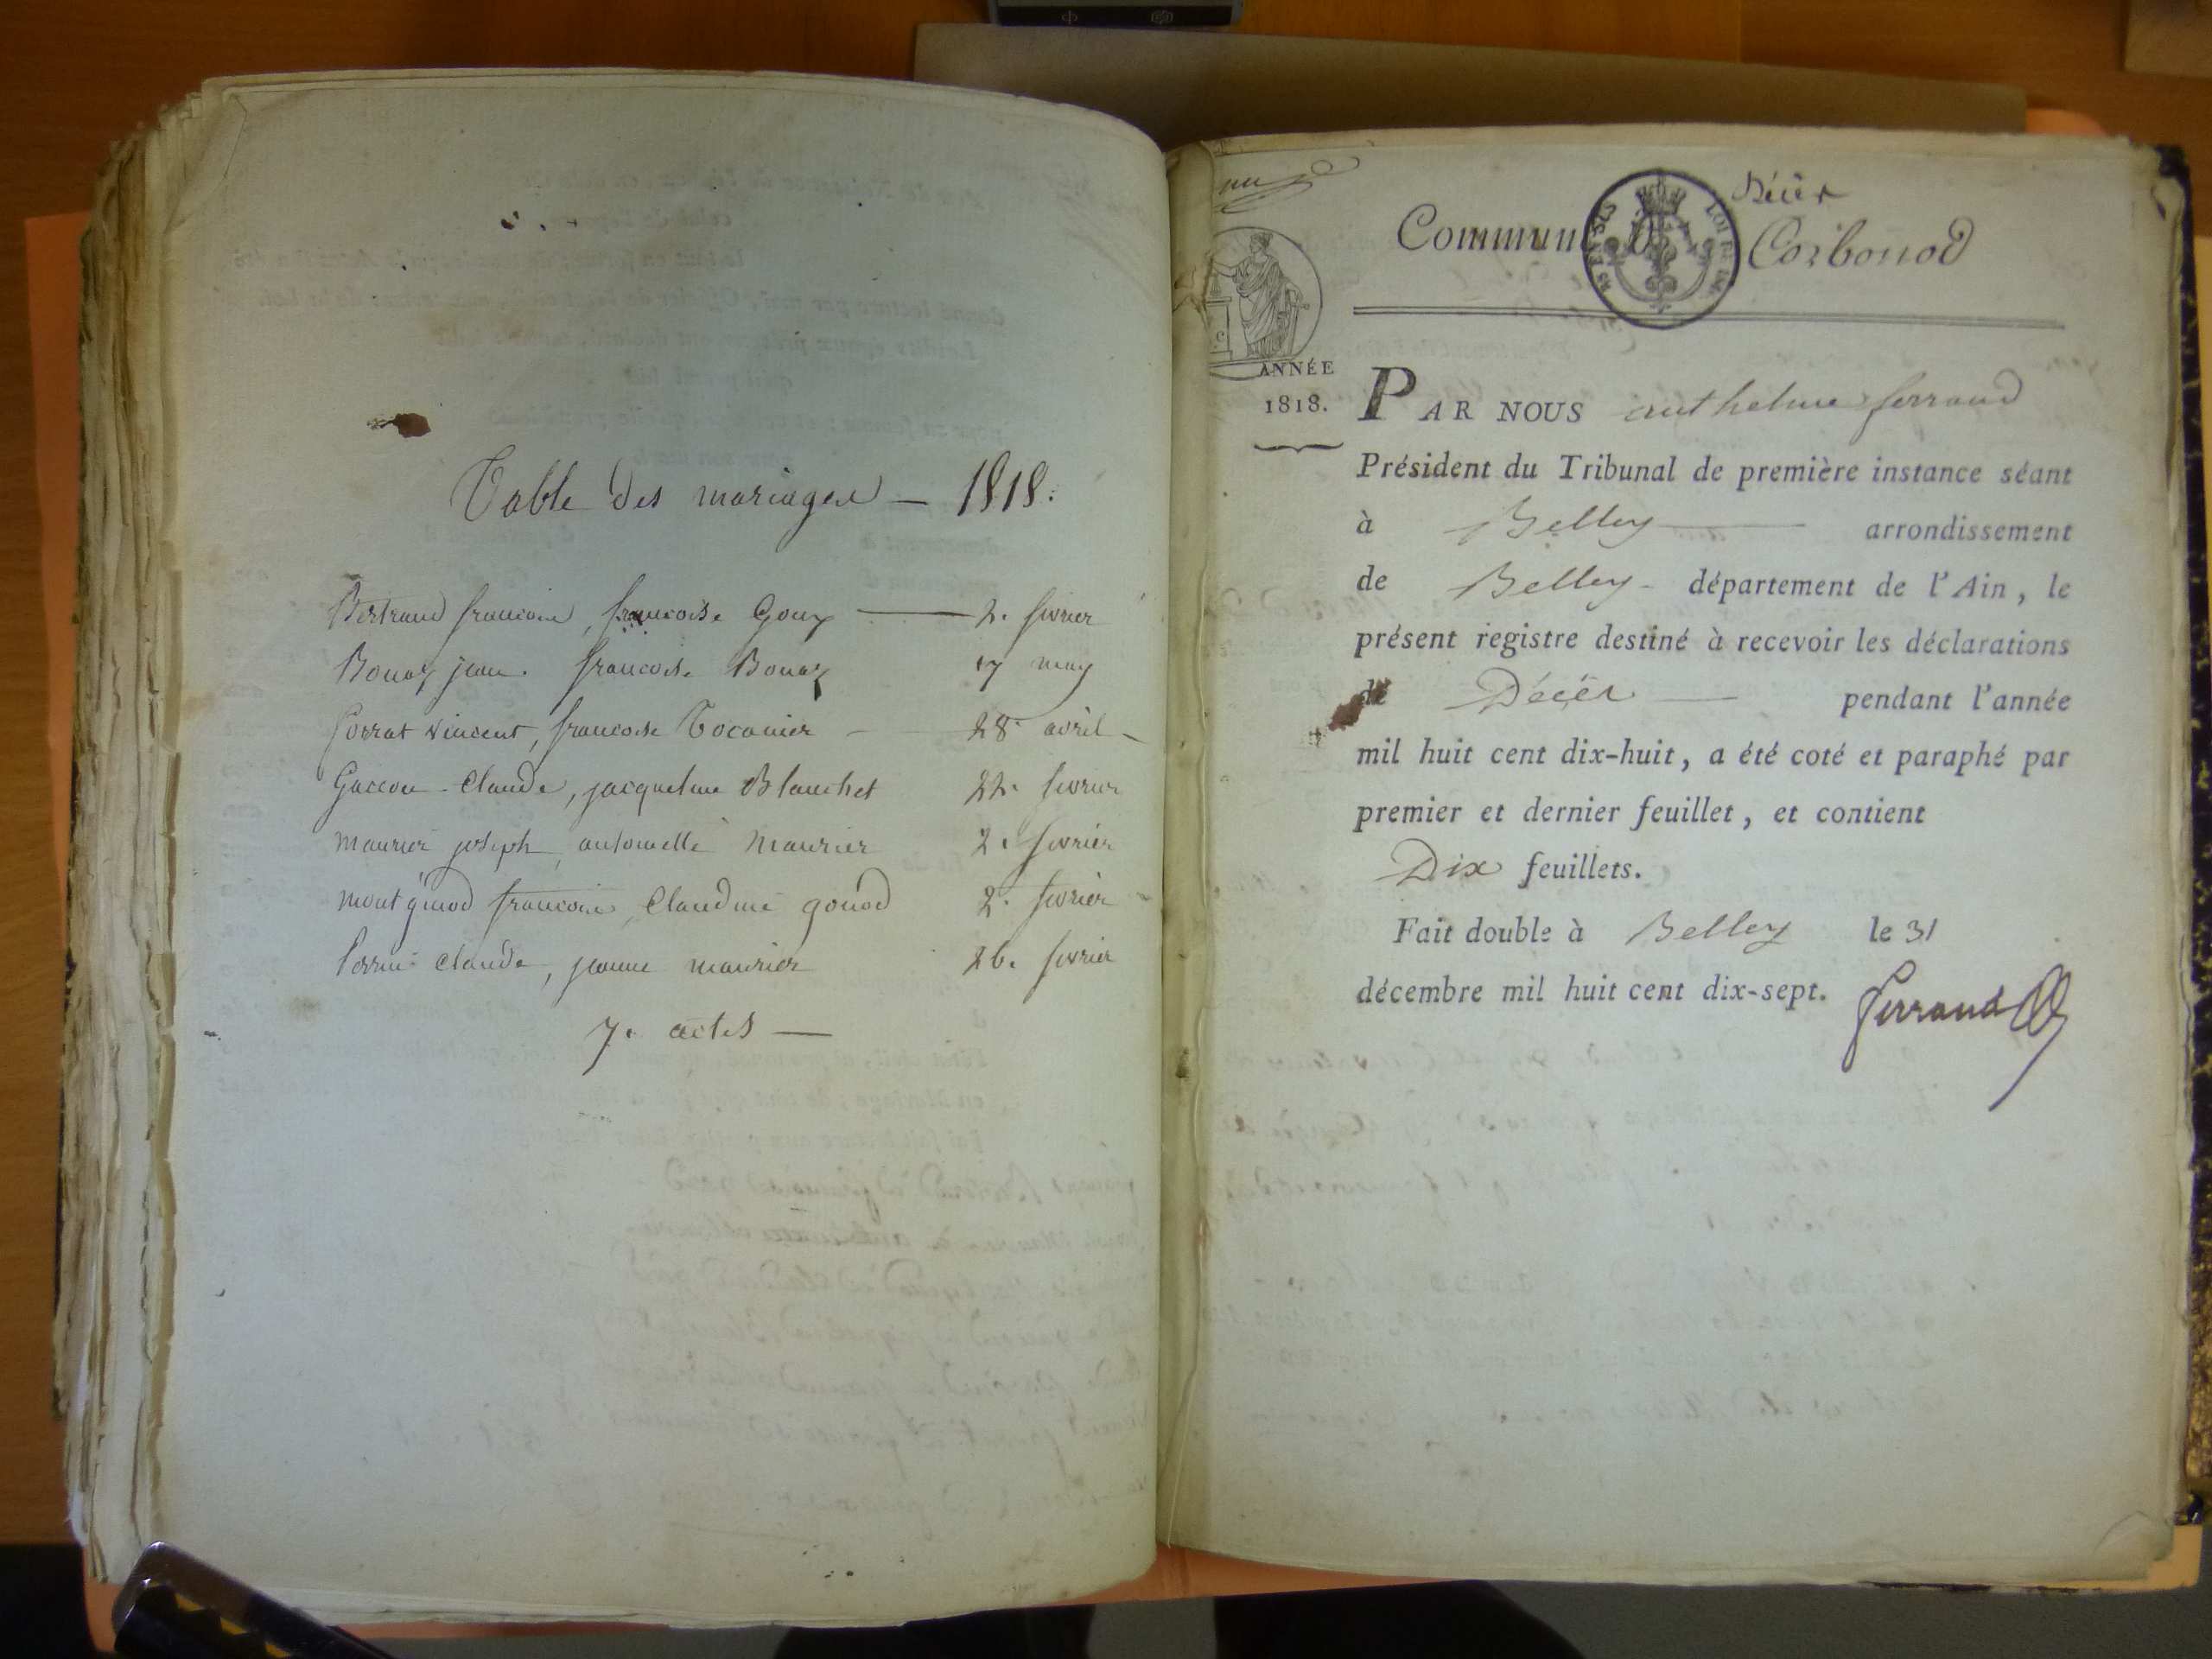 Table des mariages — 1818.
Bertrand francois, francoise Gouy — 2. fevrier
Bonaz jean. francoise Bonaz 17 may
forrat vincent, francoise Tocanier – 28 avril –
Gaccon Claude, jacqueline Blanchet 22. fevrier
maurier joseph, antoinette Maurier 2. fevrier
montginod francois, Claudine gonod 2. fevrier
perrin Claude, jeanne maurier 26. fevrier
7. actes —
Décès
Commune de Corbonod
ANNÉE
1818.
PAR NOUS anthelme ferrand
Président du Tribunal de première instance séant
à Belley — arrondissement
de Belley - département de l'Ain, le
présent registre destiné à recevoir les déclarations
de Décès — pendant l'année
mil huit cent dix-huit, a été coté et paraphé par
premier et dernier feuillet, et contient
Dix feuillets.
Fait double à Belley le 31
décembre mil huit cent dix-sept.
ferrand